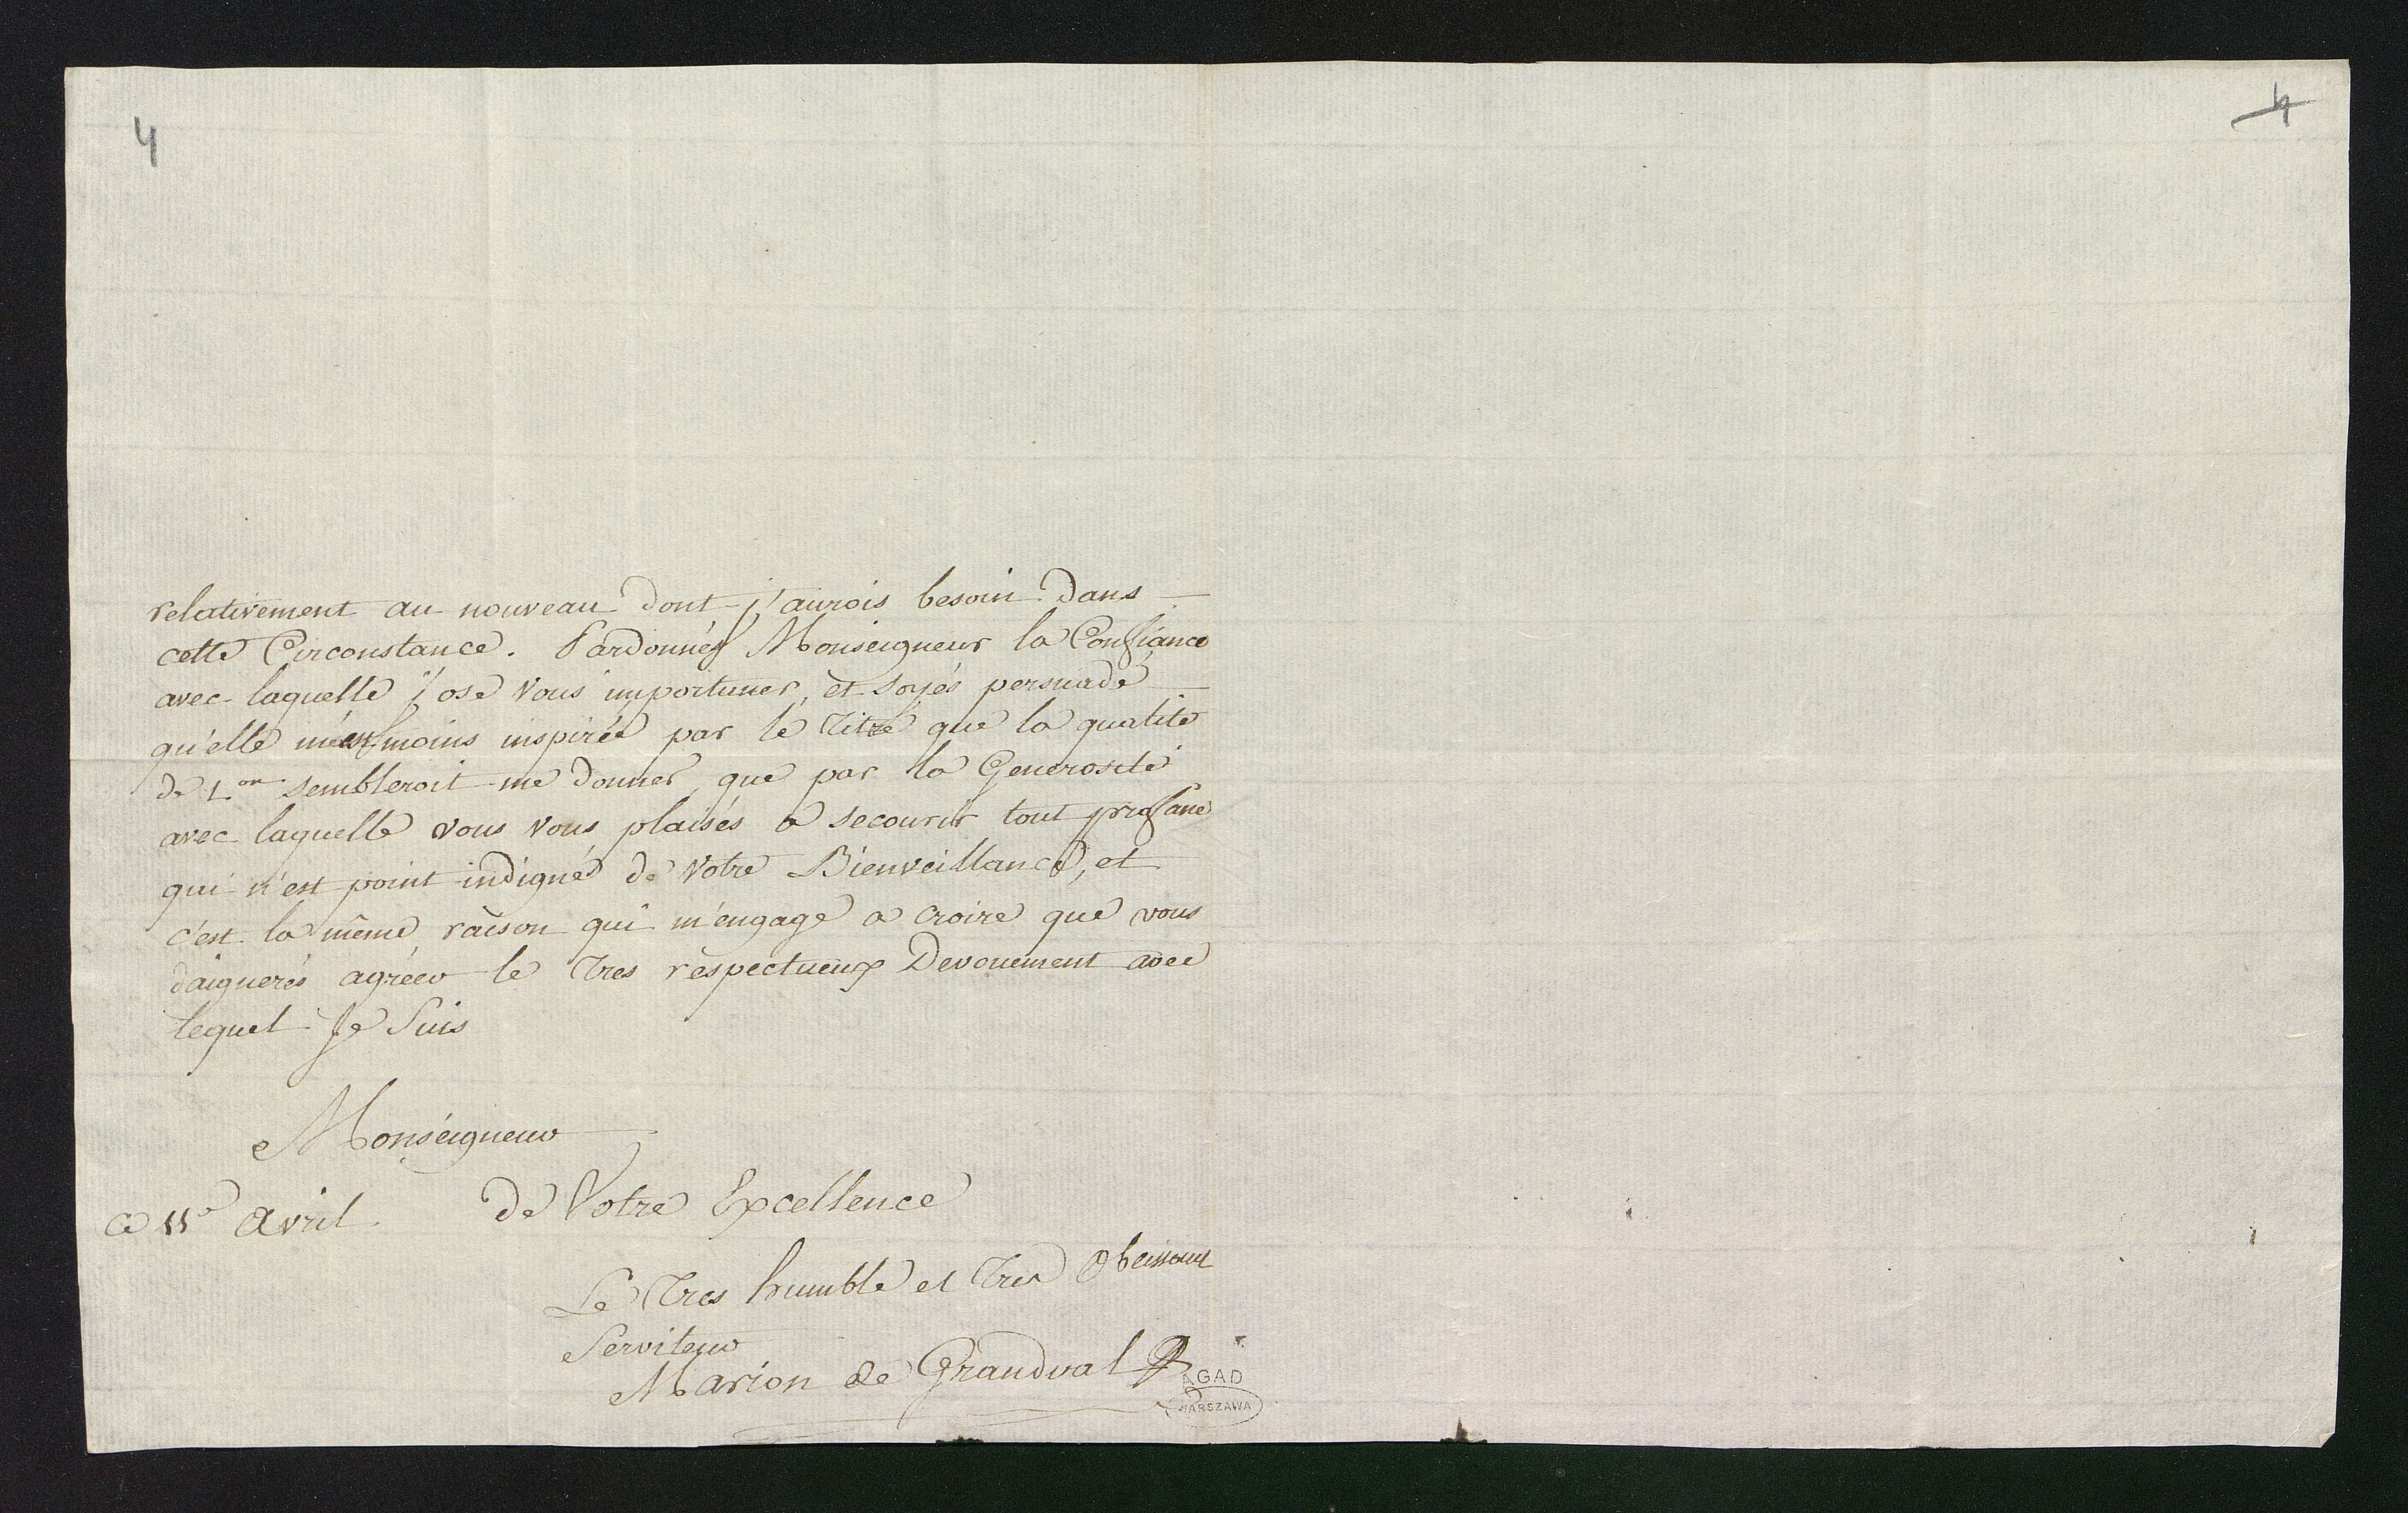 4
4
relativement au nouveau dont j'aurois besoin dans
cette Circonstance. Pardonnés Monseigneur la Confiance
avec laquelle j'ose vous importuner, et soyés persuadé
qu'elle m'est moins inspirée par le Titre que la qualité
de L.on sembleroit me donner, que par la Generosité
avec laquelle vous vous plaisés a secourir tout profane
qui n'est point indigne de Votre Bienveillance, et
c'est la même raison qui m'engage a croire que vous
daignerés agréer le Tres respectueux Devouement avec
lequel Je Suis
Monseigneur
De Votre Excellence
Ce 11e avril
Le Tres humble et Tres Obeissant
Serviteur
Marion de Grandval
AGAD
WARSZAWA